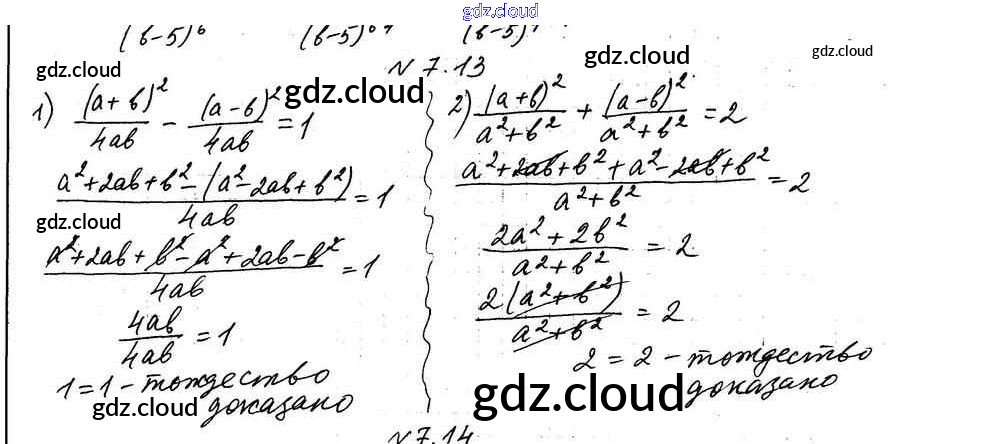 gdz.cloud
(b-5)⁶ (b-5) (b-5)
gdz.cloud
N 7.13
gdz.cloud
gdz.cloud
gdz.cloud
1) (a+b)²/4ab - (a-b)²/4ab = 1
a²+2ab+b²-(a²-2ab+b²)/4ab = 1
gdz.cloud
a²+2ab+b²-a²+2ab-b²/4ab = 1
4ab/4ab = 1
1=1 - тождество
gdz.cloud
доказано
2) (a+b)²/a²+b² + (a-b)²/a²+b² = 2
a²+2ab+b²+a²-2ab+b²/a²+b² = 2
2a²+2b²/a²+b² = 2
2(a²+b²)/a²+b² = 2
2=2 - тождество
gdz.cloud
доказано
N 7.14